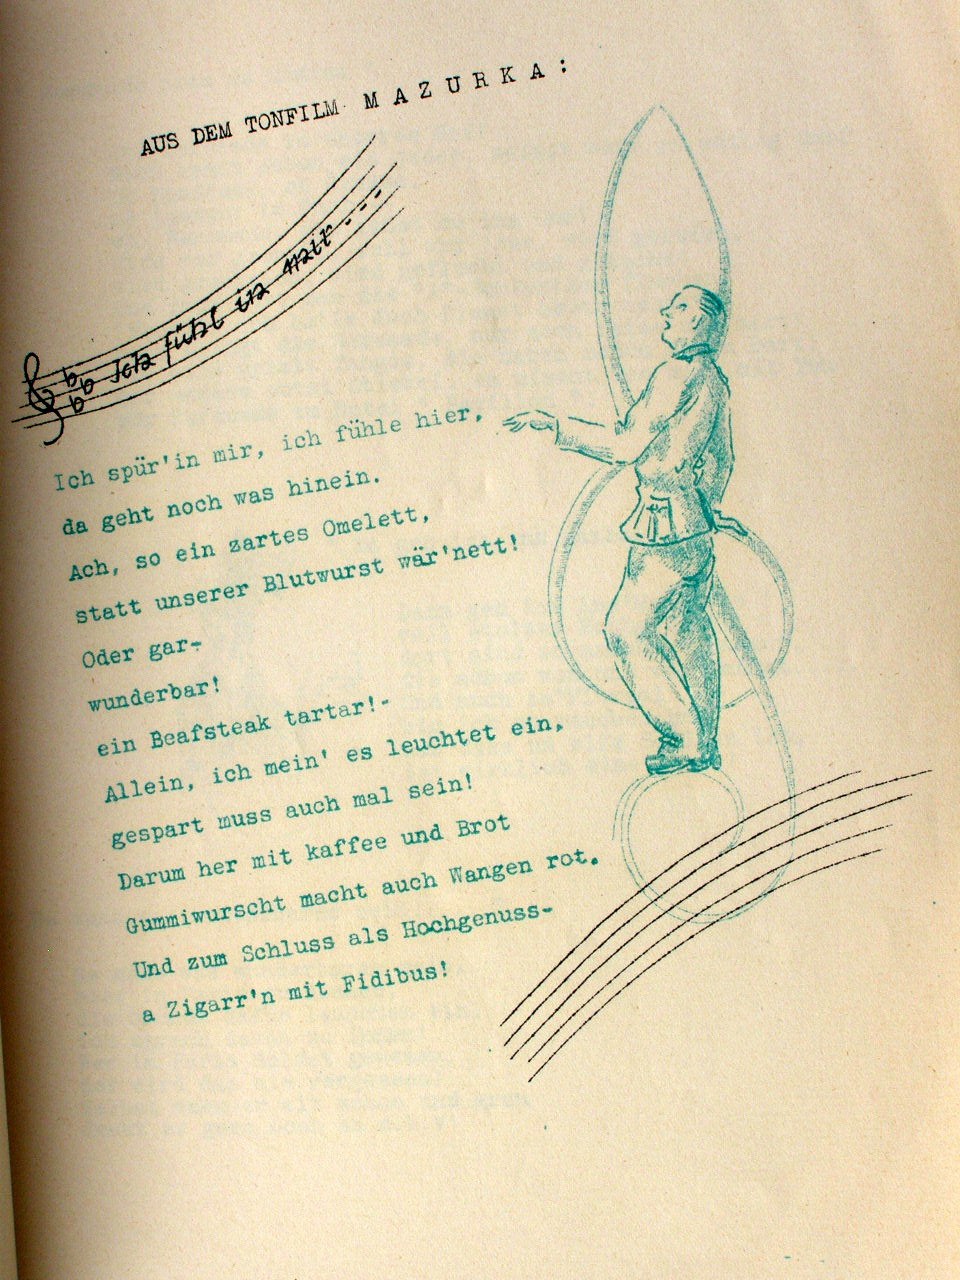 AUS DEM TONFILM M A Z U R K A :
Ich fühl in mir - - -
Ich spür'in mir, ich fühle hier,
da geht noch was hinein.
Ach, so ein zartes Omelett,
statt unserer Blutwurst wär'nett!
Oder gar-
wunderbar!
ein Beafsteak tartar!-
Allein, ich mein' es leuchtet ein,
gespart muss auch mal sein!
Darum her mit kaffee und Brot
Gummiwurscht macht auch Wangen rot.
Und zum Schluss als Hochgenuss-
a Zigarr'n mit Fidibus!